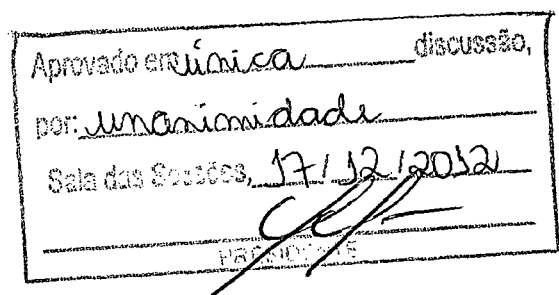 Aprovado em única discussão,
por: unanimidade
Sala das Sessões, 17/12/2012
PRESIDENTE